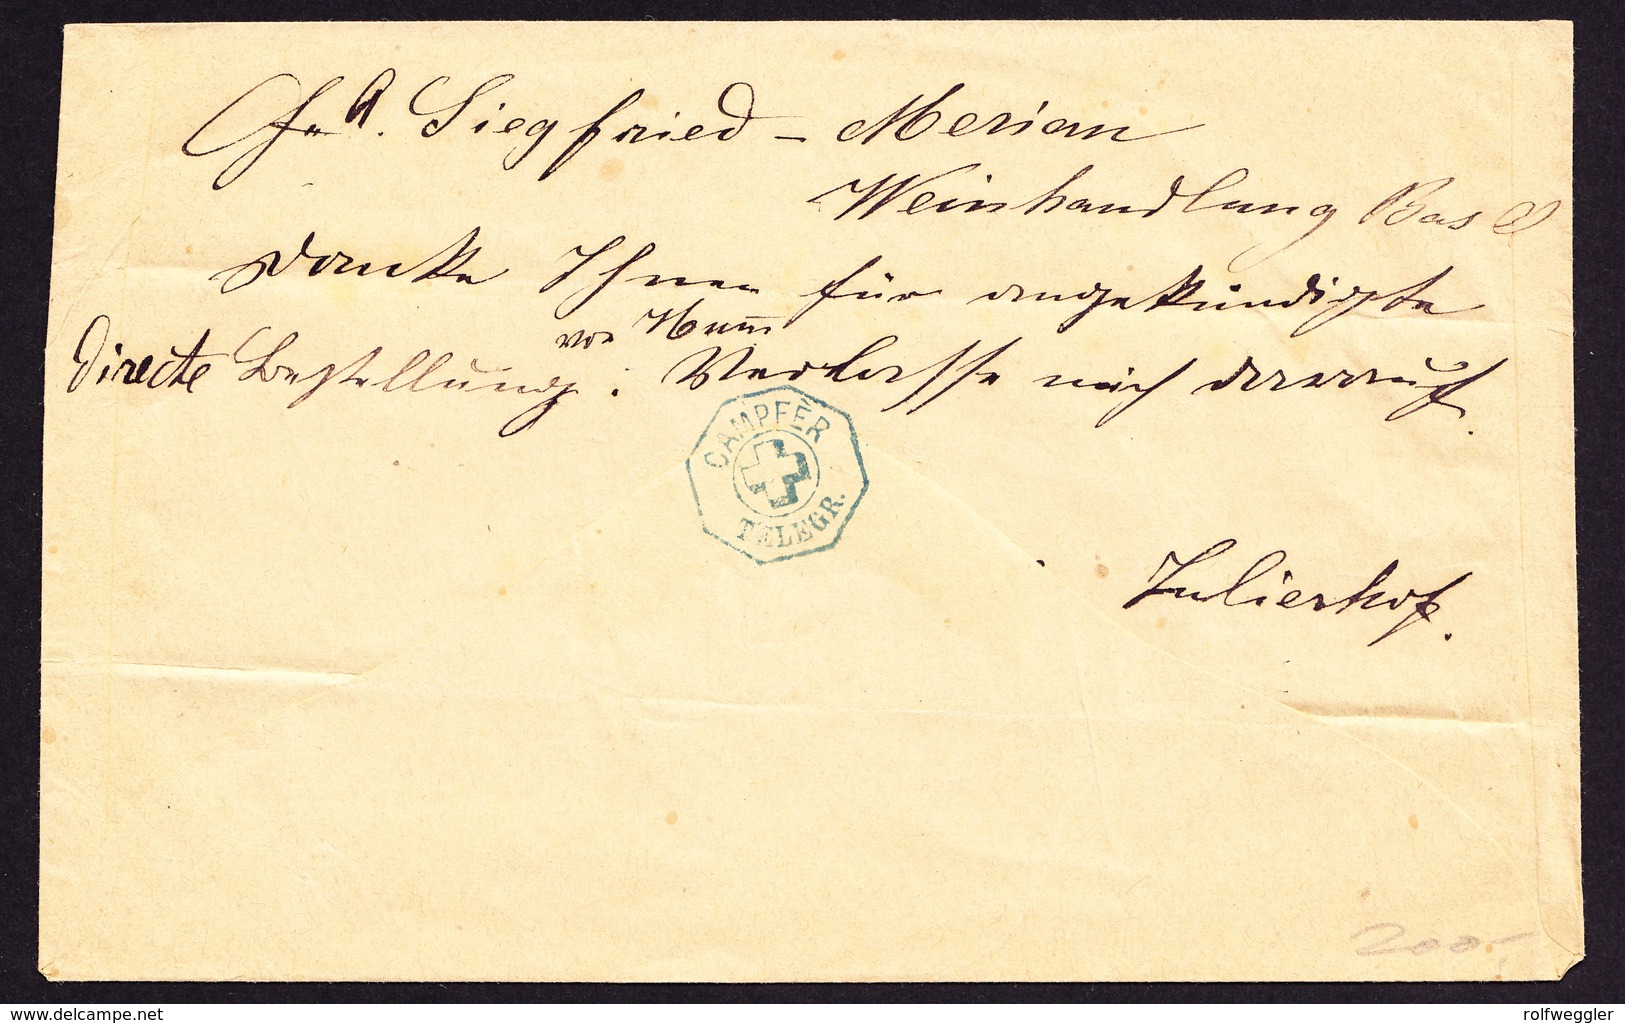 Siegfried - Merian
Weinhandlung Basel
Danke Ihnen für angekündigte
von
directe Bestellung. Verlasse mich darauf.
CAMPFÈR
TELEGR.
Julierhof.
200.-
www.delcampe.net
rolfweggler